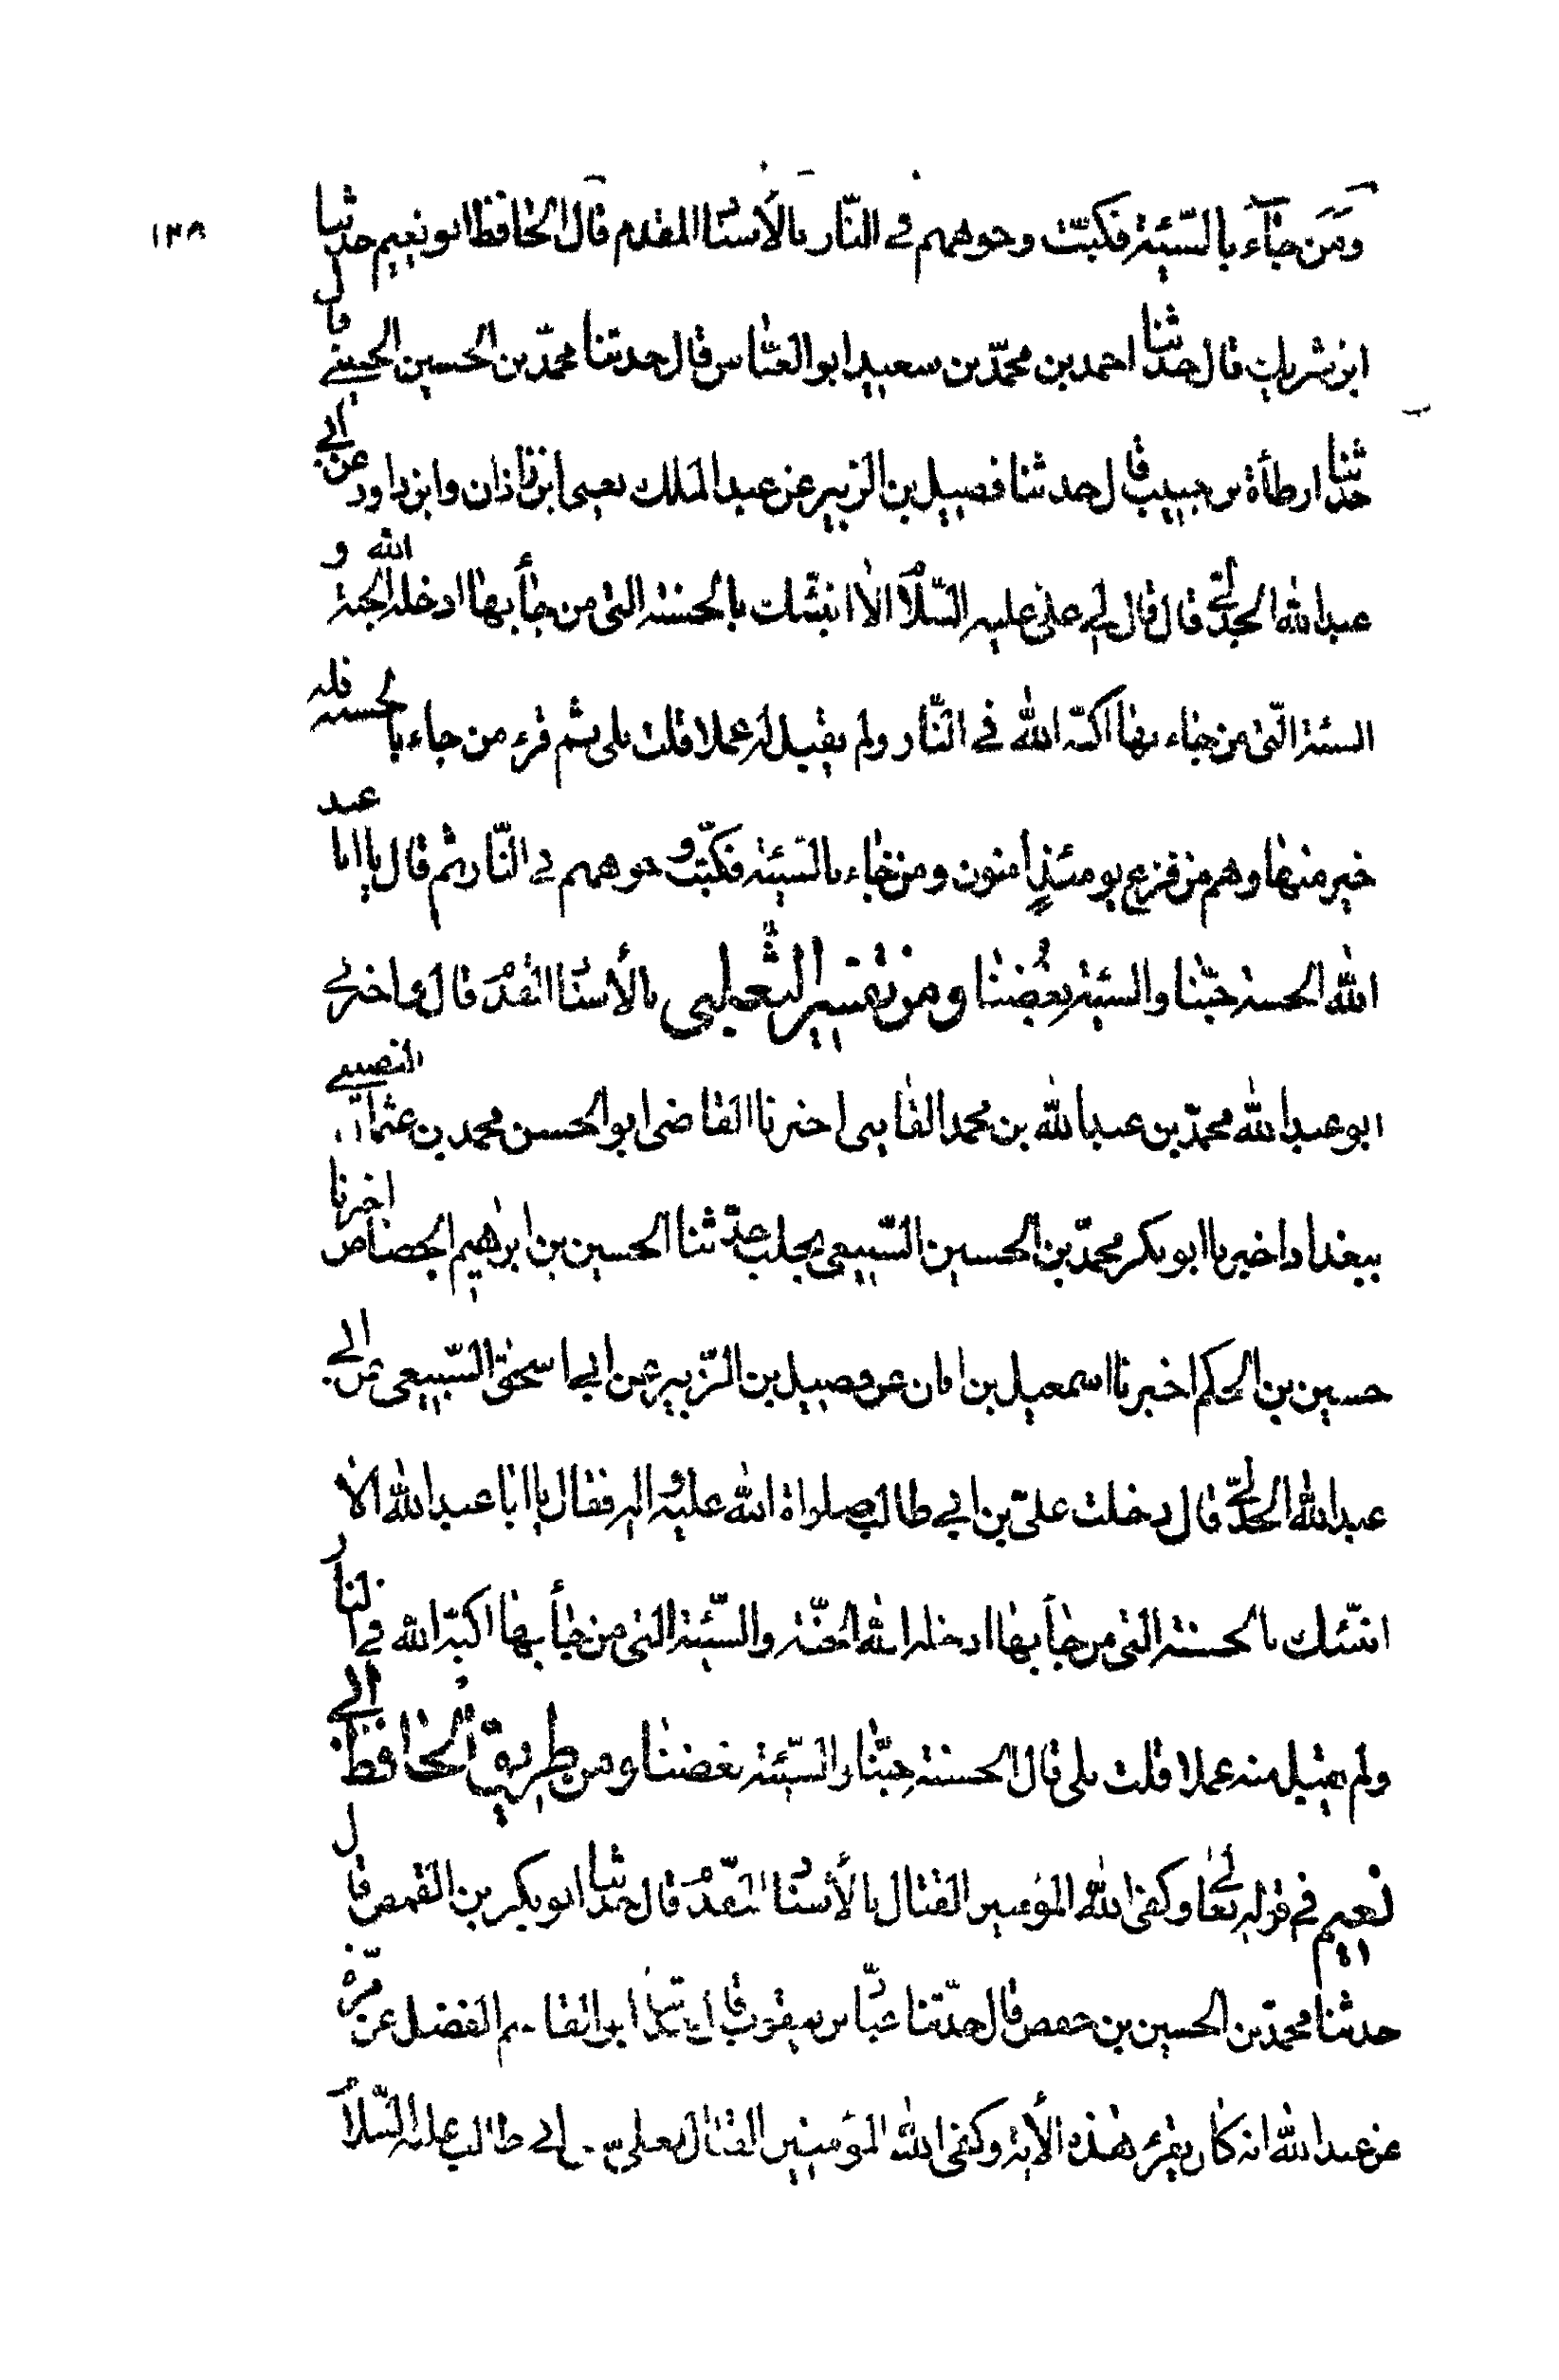 ١٣٨
ومن جاء بالسّيئة فكبّت وجوههم في النّار بالأسنا المقدم قال الحافظ ابو نعيم حدثنا
ابن شريك قال حدثنا احمد بن محمّد بن سعيد ابو العبّاس قال حدثنا محمّد بن الحسين الحبيني قال
حدثنا ارطأة بن حبيب قال حدثنا فضيل بن الزبير عن عبد الملك يعني ابن زاذان وابن داود عن ابي
عبد الله الجدلي قال قال لي علي عليه السّلا الا انبّئك بالحسنة التي من جأ بها ادخله الله الجنة و
السيئة الّتي من جاء بها اكبّه الله في النّار ولم يقبل له عملا قلت بلى ثم قرء من جاء بالحسنة فله
خير منها وهم من فزع يومئذٍ امنون ومن جاء بالسّيئة فكبّت وجوههم في النّار ثم قال يا ابا عبد
الله الحسنة حبّنا والسيئة بغضنا ومن تفسير الثّعلبي بالأسنا المقدّ قال واخبرني
ابو عبد الله محمّد بن عبد الله بن محمد القايني اخبرنا القاضي ابو الحسن محمد بن عثمان النصيبي
ببغداد اخبرنا ابو بكر محمّد بن الحسين السّبيعي بحلب حدّثنا الحسين بن ابرهيم الجصاص اخبرنا
حسين بن الحكم اخبرنا اسمعيل بن ابان عن فضيل بن الزّبير عن ابي اسحق السّبيعي عن ابي
عبد الله الجدلّي قال دخلت علي بن ابي طالب صلواة الله عليه واله فقال يا ابا عبد الله الا
انبّئك بالحسنة التي من جأ بها ادخله الله الجنّة والسّيئة التي من جأ بها اكبّه الله في النار
ولم يقبل منه عملا قلت بلى قال الحسنة حبّنا والسّيئة بغضنا ومن طريق الحافظ ابي
نعيم في قوله تعالى وكفى الله المؤمنين القتال بالأسنا المقدّ قال حدثنا ابو بكر بن القمص قال
حدثنا محمّد بن الحسين بن حفص قال حدّثنا عبّاد بن يعقوب قال ابو القاسم الفضل عن مرّة
عن عبد الله انه كان يقرء هذه الأية وكفى الله المؤمنين القتال بعليّ بن ابي طالب عليه السّلا